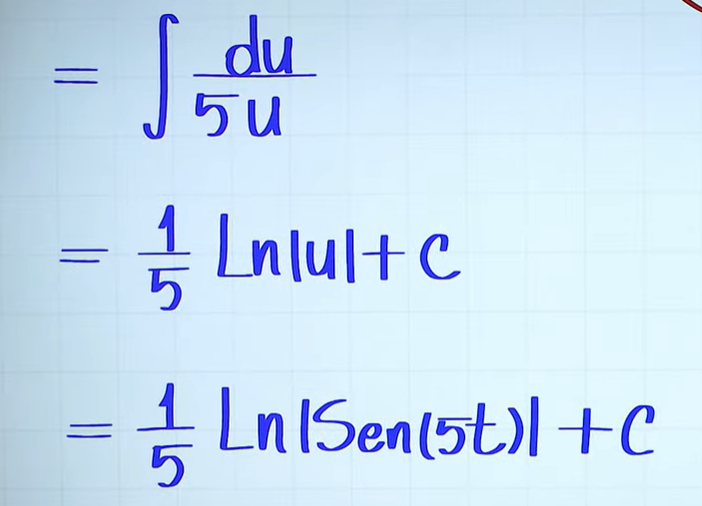 = ∫ du/5u
= 1/5 Ln|u| + C
= 1/5 Ln|Sen(5t)| + C